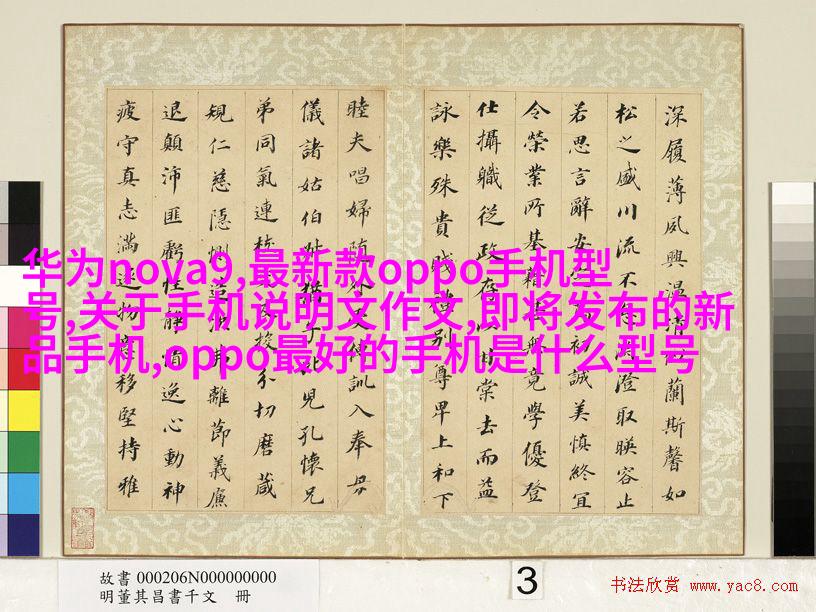 深履薄夙興温凊蘭斯馨如
松之盛川流不息澄取暎容止
若思言辭安定初誠美慎終宜
令榮業所基籍無竟學優登
仕攝職從政存以甘棠去而益
詠樂殊貴賤別尊卑上和下
睦夫唱婦隨外受傅訓入奉母
儀諸姑伯叔猶子比兒孔懷兄
弟同氣連枝友投分切磨箴
規仁慈隱惻造次弗離節義廉
退顛沛匪虧性靜情逸心動神
疲守真志滿逐物意移堅持雅
华为nova9,最新款oppo手机型
号,关于手机说明文作文,即将发布的新
品手机,oppo最好的手机是什么型号
故書 000206N000000000
明董其昌書千文 冊
3
书法欣赏 www.yac8.com